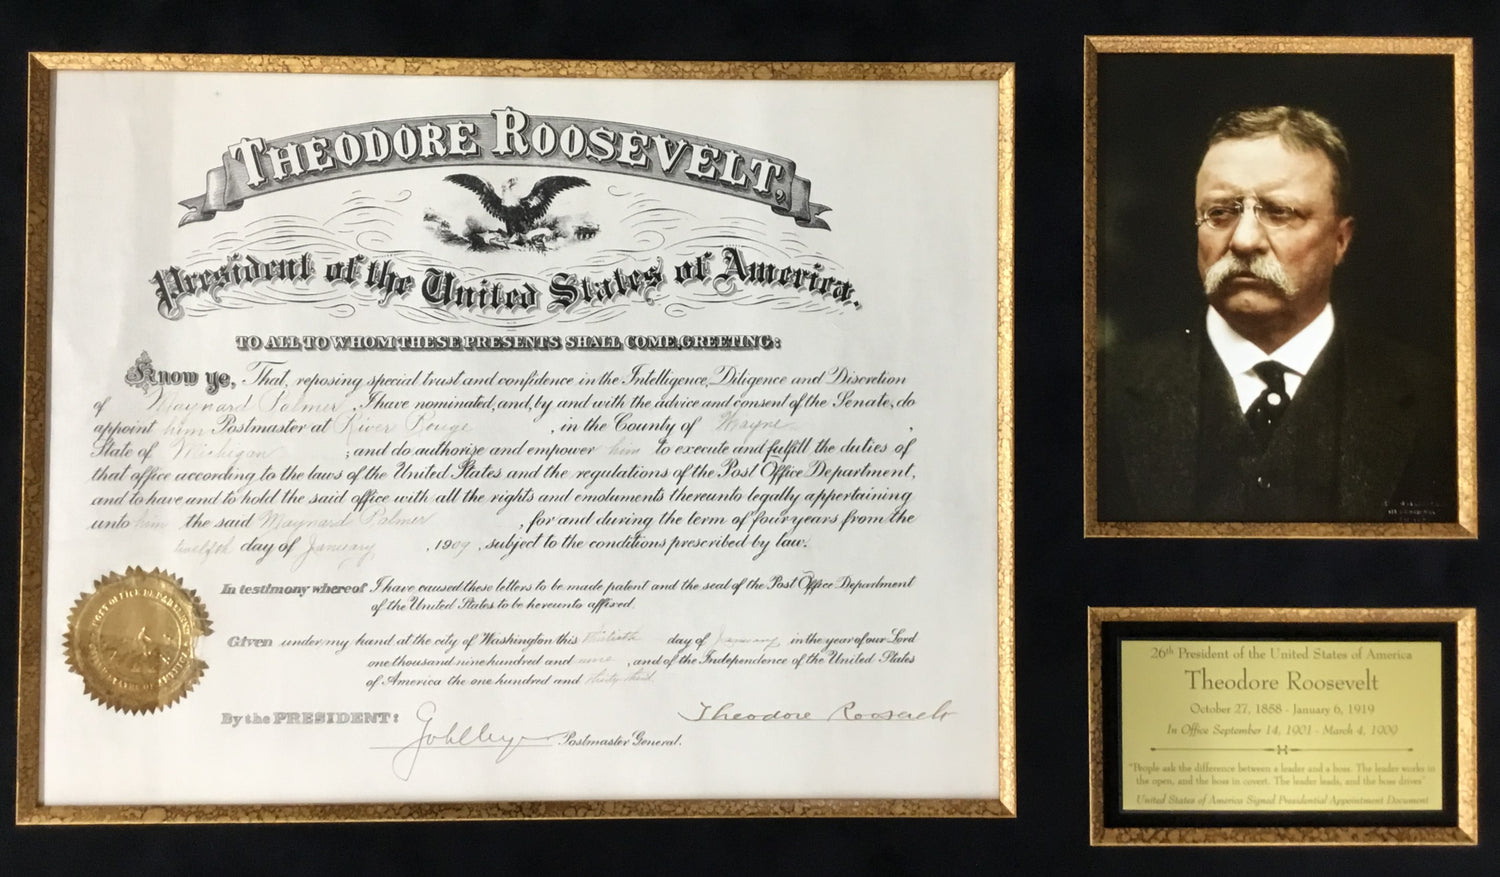 THEODORE ROOSEVELT,
President of the United States of America.
TO ALL TO WHOM THESE PRESENTS SHALL COME, GREETING:
Know ye, That, reposing special trust and confidence in the Intelligence, Diligence and Discretion
of Maynard Palmer, I have nominated, and, by and with the advice and consent of the Senate, do
appoint him Postmaster at River Rouge, in the County of Wayne,
State of Michigan; and do authorize and empower him to execute and fulfill the duties of
that office according to the laws of the United States and the regulations of the Post Office Department,
and to have and to hold the said office with all the rights and emoluments thereunto legally appertaining
unto him the said Maynard Palmer, for and during the term of four years from the
twelfth day of January, 1909, subject to the conditions prescribed by law.
In testimony whereof I have caused these letters to be made patent and the seal of the Post Office Department
of the United States to be hereunto affixed.
Given under my hand at the city of Washington this day of January in the year of our Lord
one thousand nine hundred and nine, and of the Independence of the United States
of America the one hundred and thirty-third.
By the PRESIDENT:
Theodore Roosevelt
Postmaster General.
POST OFFICE DEPARTMENT
UNITED STATES OF AMERICA
26th President of the United States of America
Theodore Roosevelt
October 27, 1858 - January 6, 1919
In Office September 14, 1901 - March 4, 1909
"People ask the difference between a leader and a boss. The leader works in
the open, and the boss in covert. The leader leads, and the boss drives"
United States of America Signed Presidential Appointment Document